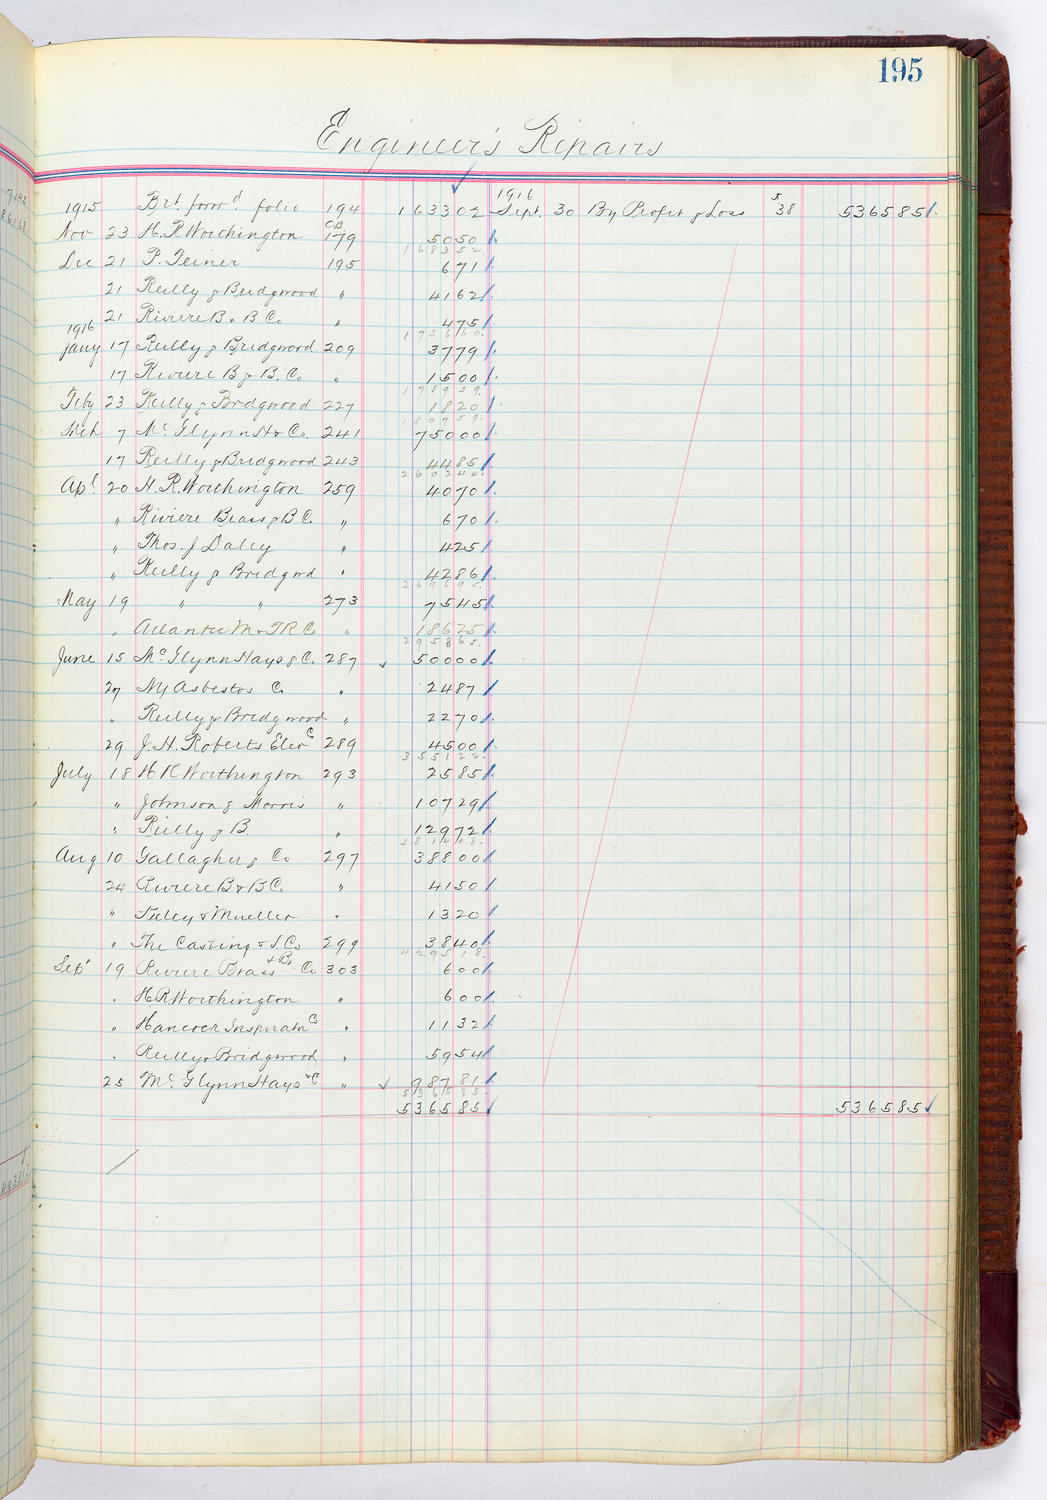 195
Engineer's Repairs
1916
1915 Brt. forwd folio 194 163302 Sept. 30 By Profit & Loss 38 536585
CB
Nov 23 H. R Worthington 179 5050
168352
Dec 21 P. 195 671
21 Reilly & Bridgwood " 4162
21 Riviere B & B Co. " 475
1916
173660
Jany 17 Reilly & Bridgwood 209 3779
17 Riviere B & B. Co. " 1500
178939
Feby 23 Reilly & Bridgwood 227 1820
180759
Mch 7 Mc. Glynn H & Co. 241 75000
17 Reilly & Bridgwood 243 4485
260244
Apl 20 H. R. Worthington 259 4070
" Riviere Brass & B C. " 670
" Thos. J Daley " 425
" Reilly & Bridgwd " 4286
269695
May 19 " " 273 7545
" Atlantic M & T R Co " 18625
295865
June 15 Mc. Glynn Hays & C. 287 50000
27 NY Asbestos C. " 2487
" Reilly & Bridgwood " 2270
29 J. H. Roberts Elev C 289 4500
355122
July 18 H R Worthington 293 2585
" Johnson & Morris " 10729
" Reilly & B " 12972
381408
Aug 10 Gallagher & Co 297 38800
24 Riviere B & B C. " 4150
" & Mueller " 1320
" The Casting & S. Co 299 3840
429518
Sept 19 Riviere Brass & Br. Co 303 600
" H. R Worthington " 600
" Hancock Inspirator C " 1132
" Reilly & Bridgwood " 5954
25 Mc. Glynn Hays & C " 98781
536585
536585 536585